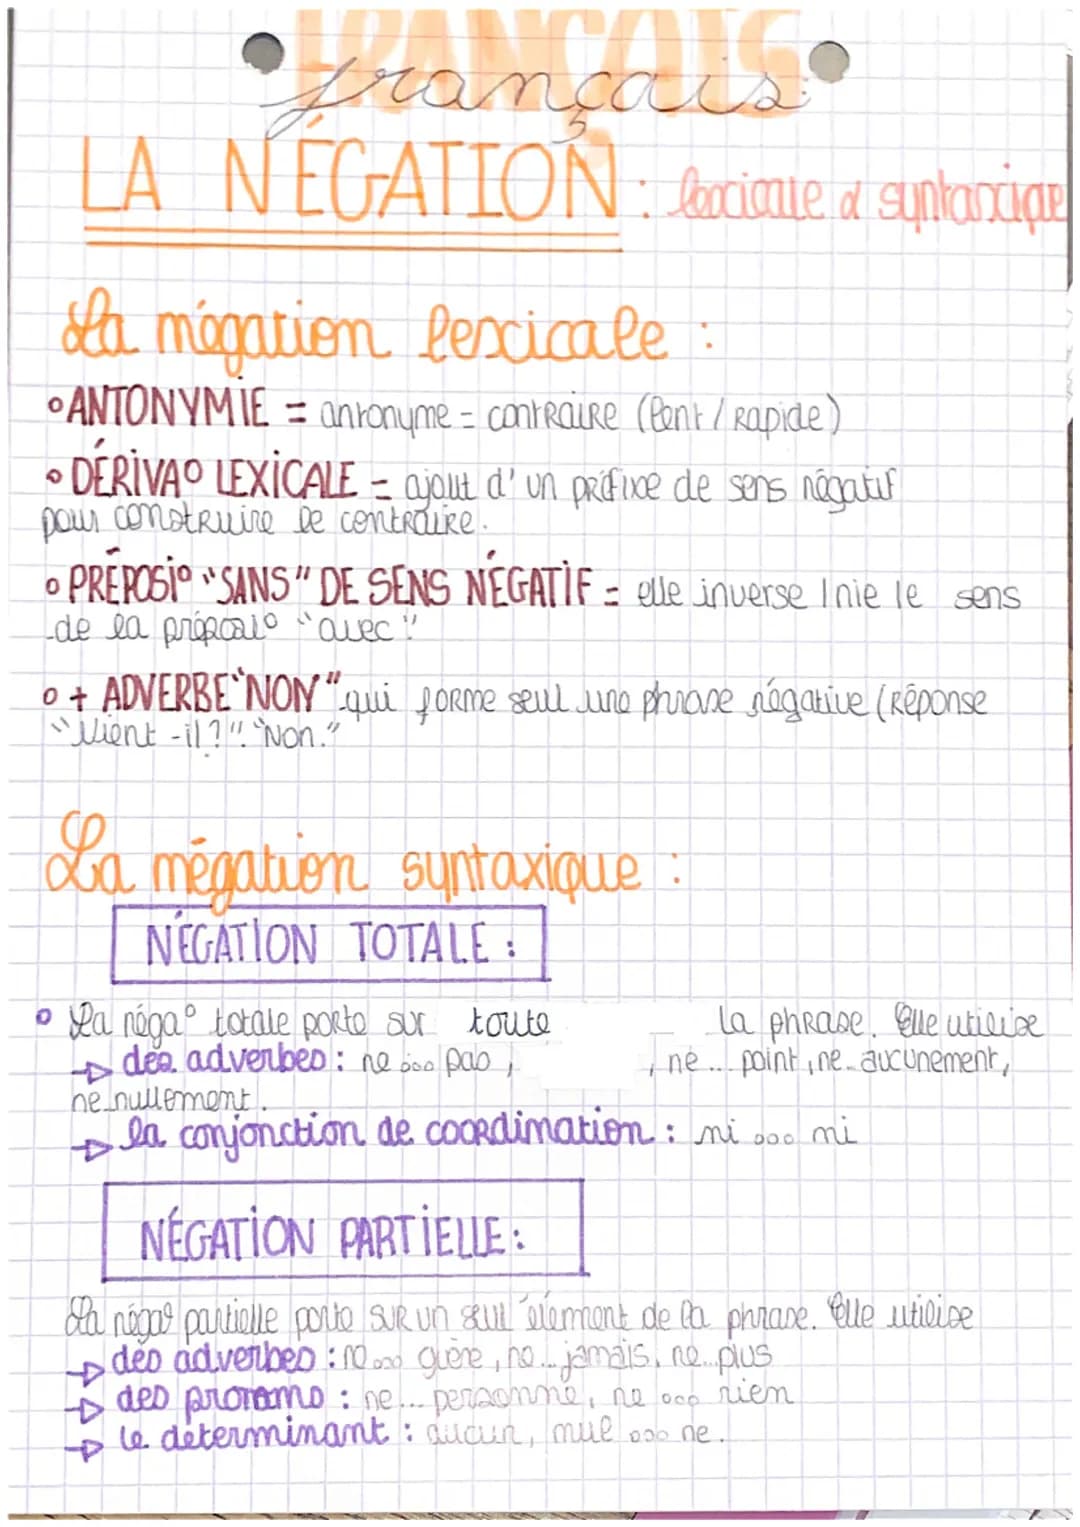 FRANÇAIS
français
LA NÉGATION : lexicale & syntaxique
La négation lexicale :
• ANTONYMIE = antonyme = contRaiRe (lent / Rapide)
• DÉRIVA° LEXICALE = ajout d'un préfixe de sens négatif
pour constRuire le contRaire.
• PRÉPOSI° "SANS" DE SENS NÉGATIF = elle inverse / nie le sens
de la préposi° "avec"
• + ADVERBE "NON" qui forme seul une phrase négative (Réponse
"Vient-il ?". "Non."
La négation syntaxique :
NÉGATION TOTALE :
• La néga° totale porte sur toute la phrase. Elle utilise
→ des adverbes : ne ... pas, , ne ... point, ne... aucunement,
ne nullement.
→ la conjonction de coordination : ni ... ni
NÉGATION PARTIELLE :
La néga° partielle porte sur un seul élément de la phrase. Elle utilise
→ des adverbes : ne ... guère, ne ... jamais, ne...plus
→ des pronoms : ne ... personne, ne ... rien
→ le determinant : aucun, nul ... ne.